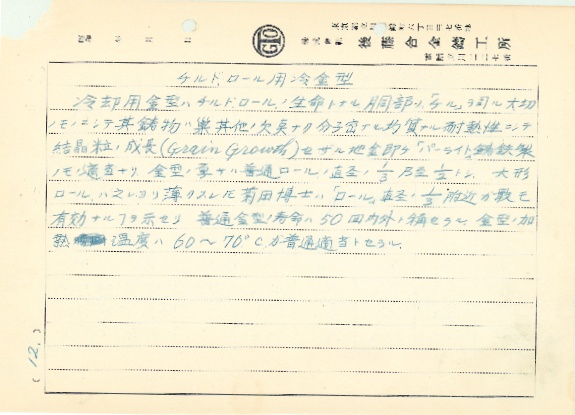 後藤合金鋳工所
チルドロール用冷金型
冷却用金型ハチルドロールノ生命トナル胴部ノ「チル」ヲ司ル大切
ノモノニシテ其鋳物ハ巣其他ノ欠点ナク分子密ナル均質ナル耐熱性ニシテ
結晶粒ノ成長(Grain Growth)セザル地金即チ「パーライト」鋳鉄製
ノモノ適当ナリ 金型ノ厚サハ普通ロールノ直径ノ 1/3 乃至 1/2 トシ 大形
ロールハ之レヨリ薄クスレドモ 菊田博士ハ「ロール」直径ノ 1/3 附近ガ最モ
有効ナルヿヲ示セリ 普通金型ノ寿命ハ 50 回内外ト称セラル 金型ノ加
熱 温度ハ 60〜70°C ガ普通適当トセラル
(12.)